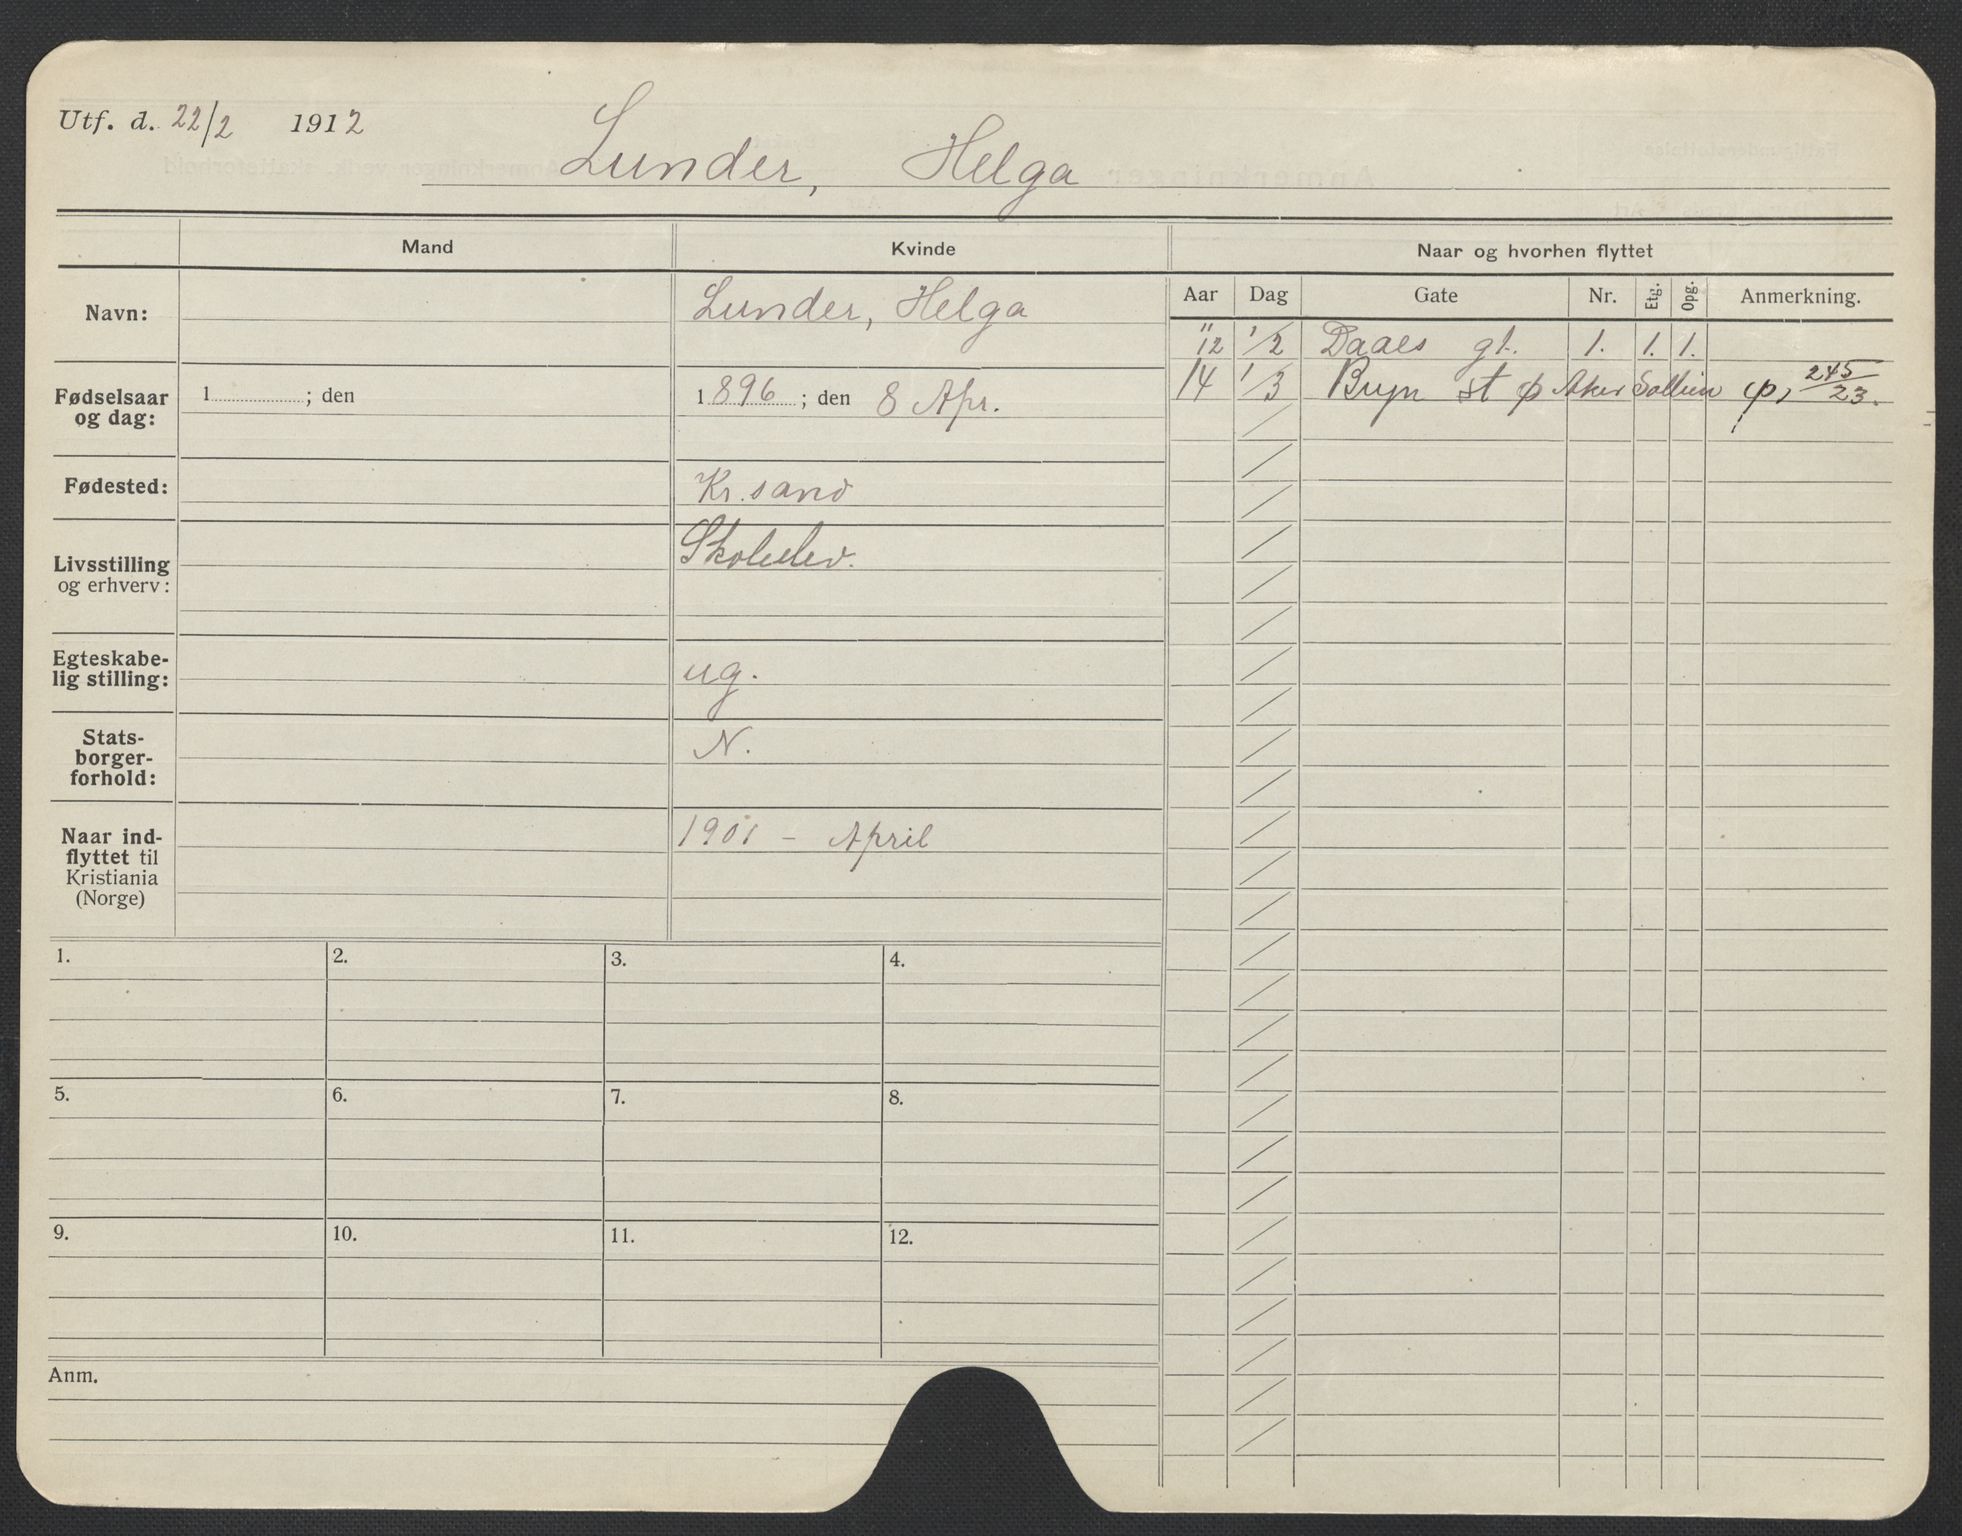 Utf. d. 22/2 1912
Lunder, Helga
Mand Kvinde Naar og hvorhen flyttet
Navn: Lunder, Helga
Aar Dag Gate Nr. Etg. Opg. Anmerkning.
"12 1/2 Daaes gt. 1. 1. 1.
14 1/3 Bryn st φ Aker φ, 245/23.
Fødselsaar og dag: 1 ; den 1896 ; den 8 Apr.
Fødested: Kr.sand
Livsstilling og erhverv: Skoleelev.
Egteskabe-
lig stilling: ug.
Stats-
borger-
forhold: N.
Naar ind-
flyttet til
Kristiania
(Norge) 1901 - April
1. 2. 3. 4.
5. 6. 7. 8.
9. 10. 11. 12.
Anm.